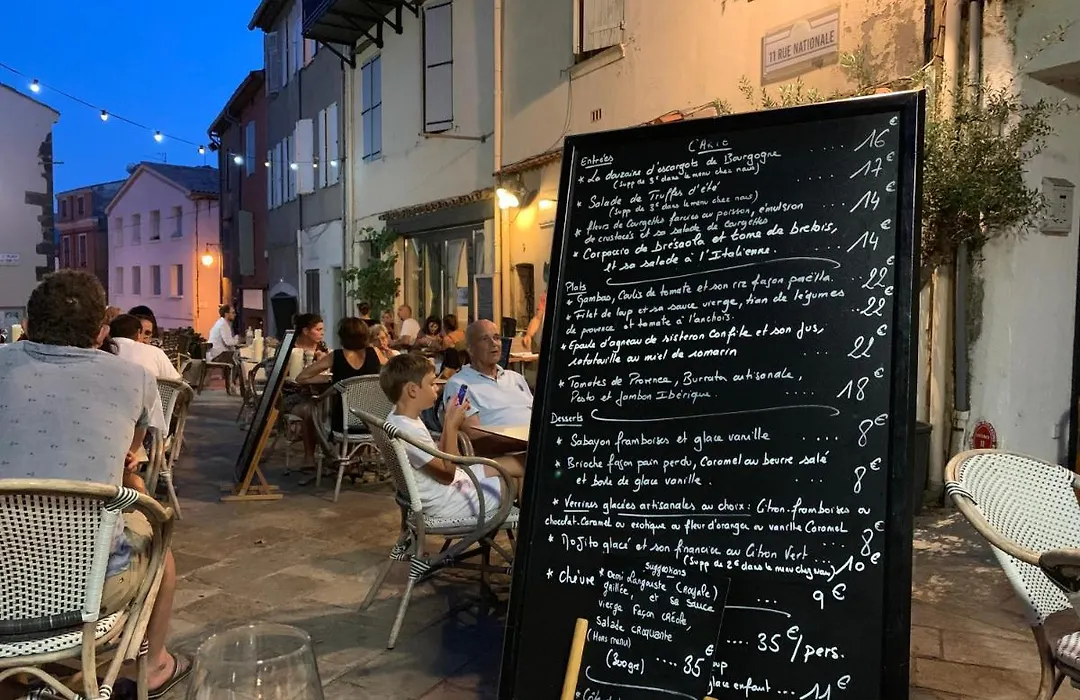 11 RUE NATIONALE
L'Arte
Entrées
* La douzaine d'escargots de Bourgogne .... 16€
(Supp de 3€ dans le menu chez nous)
* Salade de Truffes d'été .... 17€
(Supp de 3€ dans le menu chez nous)
* fleurs de Courgettes farcies au poisson, émulsion .... 14€
de crustacés et sa salade de courgettes
* Carpaccio de bresaola et tome de brebis, .... 14€
et sa salade à l'Italienne.
Plats
* Gambas, Coulis de tomate et son riz façon paëlla. 22€
* Filet de loup et sa sauce vierge, tian de légumes
de provence et tomate à l'anchois. .... 22€
* Epaule d'agneau de sisteron Confite et son jus,
ratatouille au miel de romarin .... 22€
* Tomates de Provence, Burrata artisanale,
Pesto et Jambon Ibérique. .... 18€
Desserts
* Sabayon framboises et glace vanille .... 8€
* Brioche façon pain perdu, Caramel au beurre salé
et boule de glace vanille. .... 8€
* Verrines glacées artisanales au choix: Citron-framboises ou
chocolat-Caramel ou exotique ou fleur d'oranger ou vanille Caramel
.... 8€
* Mojito glacé et son financier au Citron Vert ....
(Supp de 2€ dans le menu chez nous) 10€
* Chèvre ... 9€
Suggestions
* Demi Langouste (Royale)
grillée, et sa sauce
vierge façon créole,
Salade croquante
(Hors menu)
(300gr) ... 35€
.... 35€/pers.
glace enfant ... 11€
* Côte